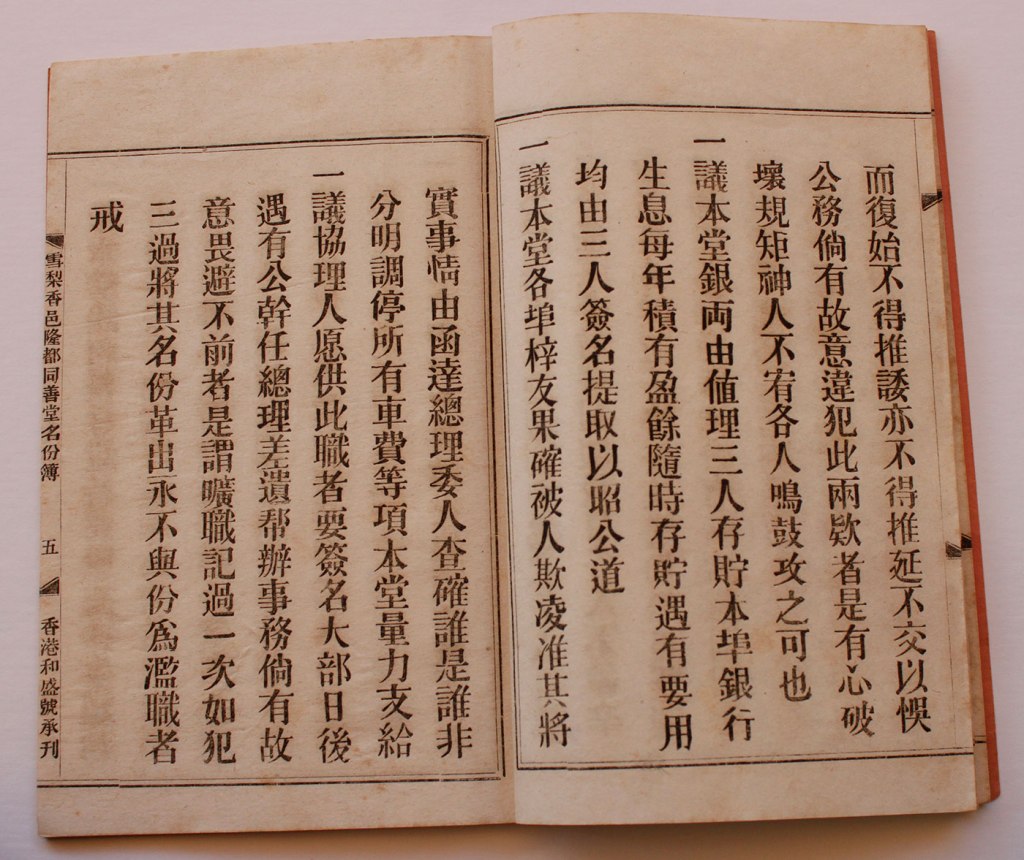 而復始不得推諉亦不得推延不交以悞
公務倘有故意違犯此兩欵者是有心破
壞規矩神人不宥各人鳴鼓攻之可也
一議本堂銀両由値理三人存貯本埠銀行
生息每年積有盈餘隨時存貯遇有要用
均由三人簽名提取以昭公道
一議本堂各埠梓友果確被人欺凌准其將
實事情由函達總理委人查確誰是誰非
分明調停所有車費等項本堂量力支給
一議協理人愿供此職者要簽名大部日後
遇有公幹任總理差遣帮辦事務倘有故
意畏避不前者是謂曠職記過一次如犯
三過將其名份革出永不與份為濫職者
戒
雪梨香邑隆都同善堂名份簿 五 香港和盛號承刊